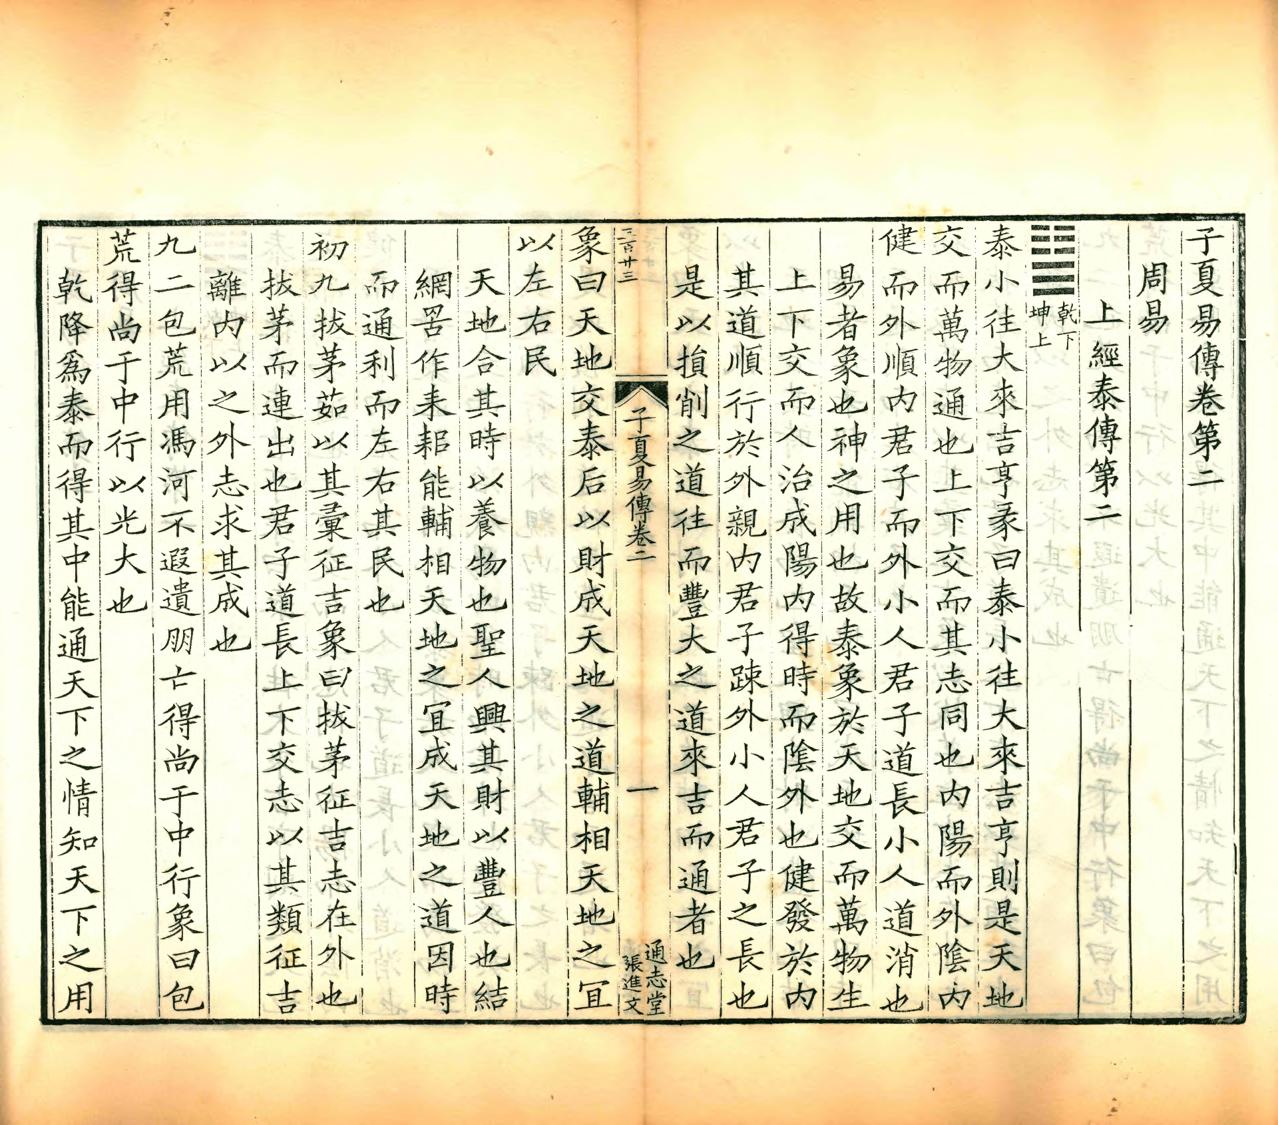 子夏易傳卷第二
周易
上經泰傳第二
乾下
坤上
泰小往大來吉亨彖曰泰小往大來吉亨則是天地
交而萬物通也上下交而其志同也内陽而外陰内
健而外順内君子而外小人君子道長小人道消也
易者象也神之用也故泰象於天地交而萬物生
上下交而人治成陽内得時而陰外也健發於内
其道順行於外親内君子踈外小人君子之長也
是以損削之道往而豐大之道來吉而通者也
三百廿三
子夏易傳卷二
一
通志堂
張進文
象曰天地交泰后以財成天地之道輔相天地之宜
以左右民
天地合其時以養物也聖人興其財以豐人也結
網罟作耒耜能輔相天地之宜成天地之道因時
而通利而左右其民也
初九拔茅茹以其彙征吉象曰拔茅征吉志在外也
拔茅而連出也君子道長上下交志以其類征吉
離内以之外志求其成也
九二包荒用馮河不遐遺朋亡得尚于中行象曰包
荒得尚于中行以光大也
乾降爲泰而得其中能通天下之情知天下之用